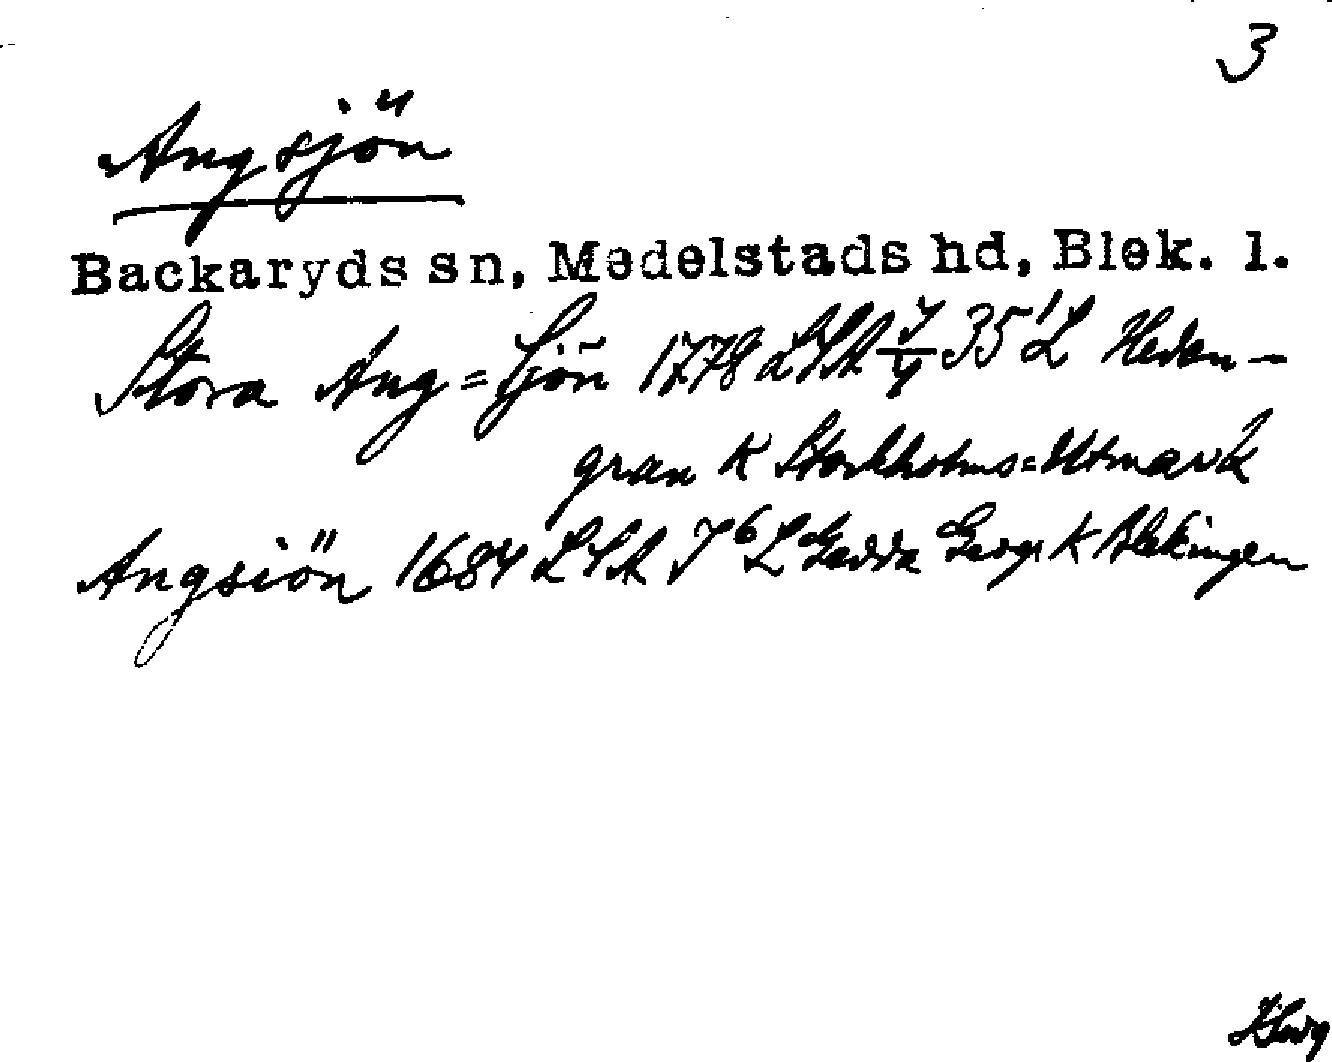 3
Angsjön
Backaryds sn, Medelstads hd, Blek. l.
Stora Ang=Sjön 1778 LSA 35 L Heden-
gran K Stockholms=Utmark
Angsiön 1684 LSA J 6 L Gedda Geogr K Blekingen